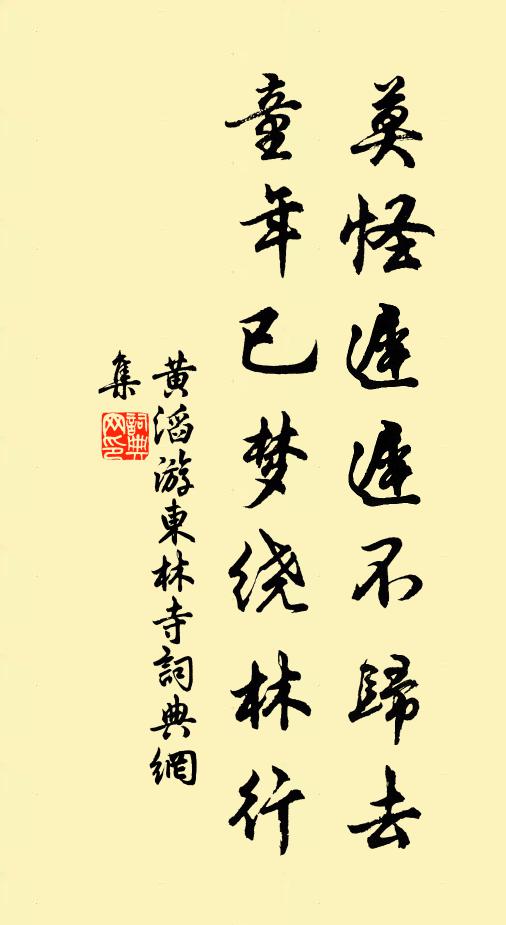 莫怪遲遲不歸去
童年已梦绕林行
黄滔游東林寺詞典網
集
詞典
网印